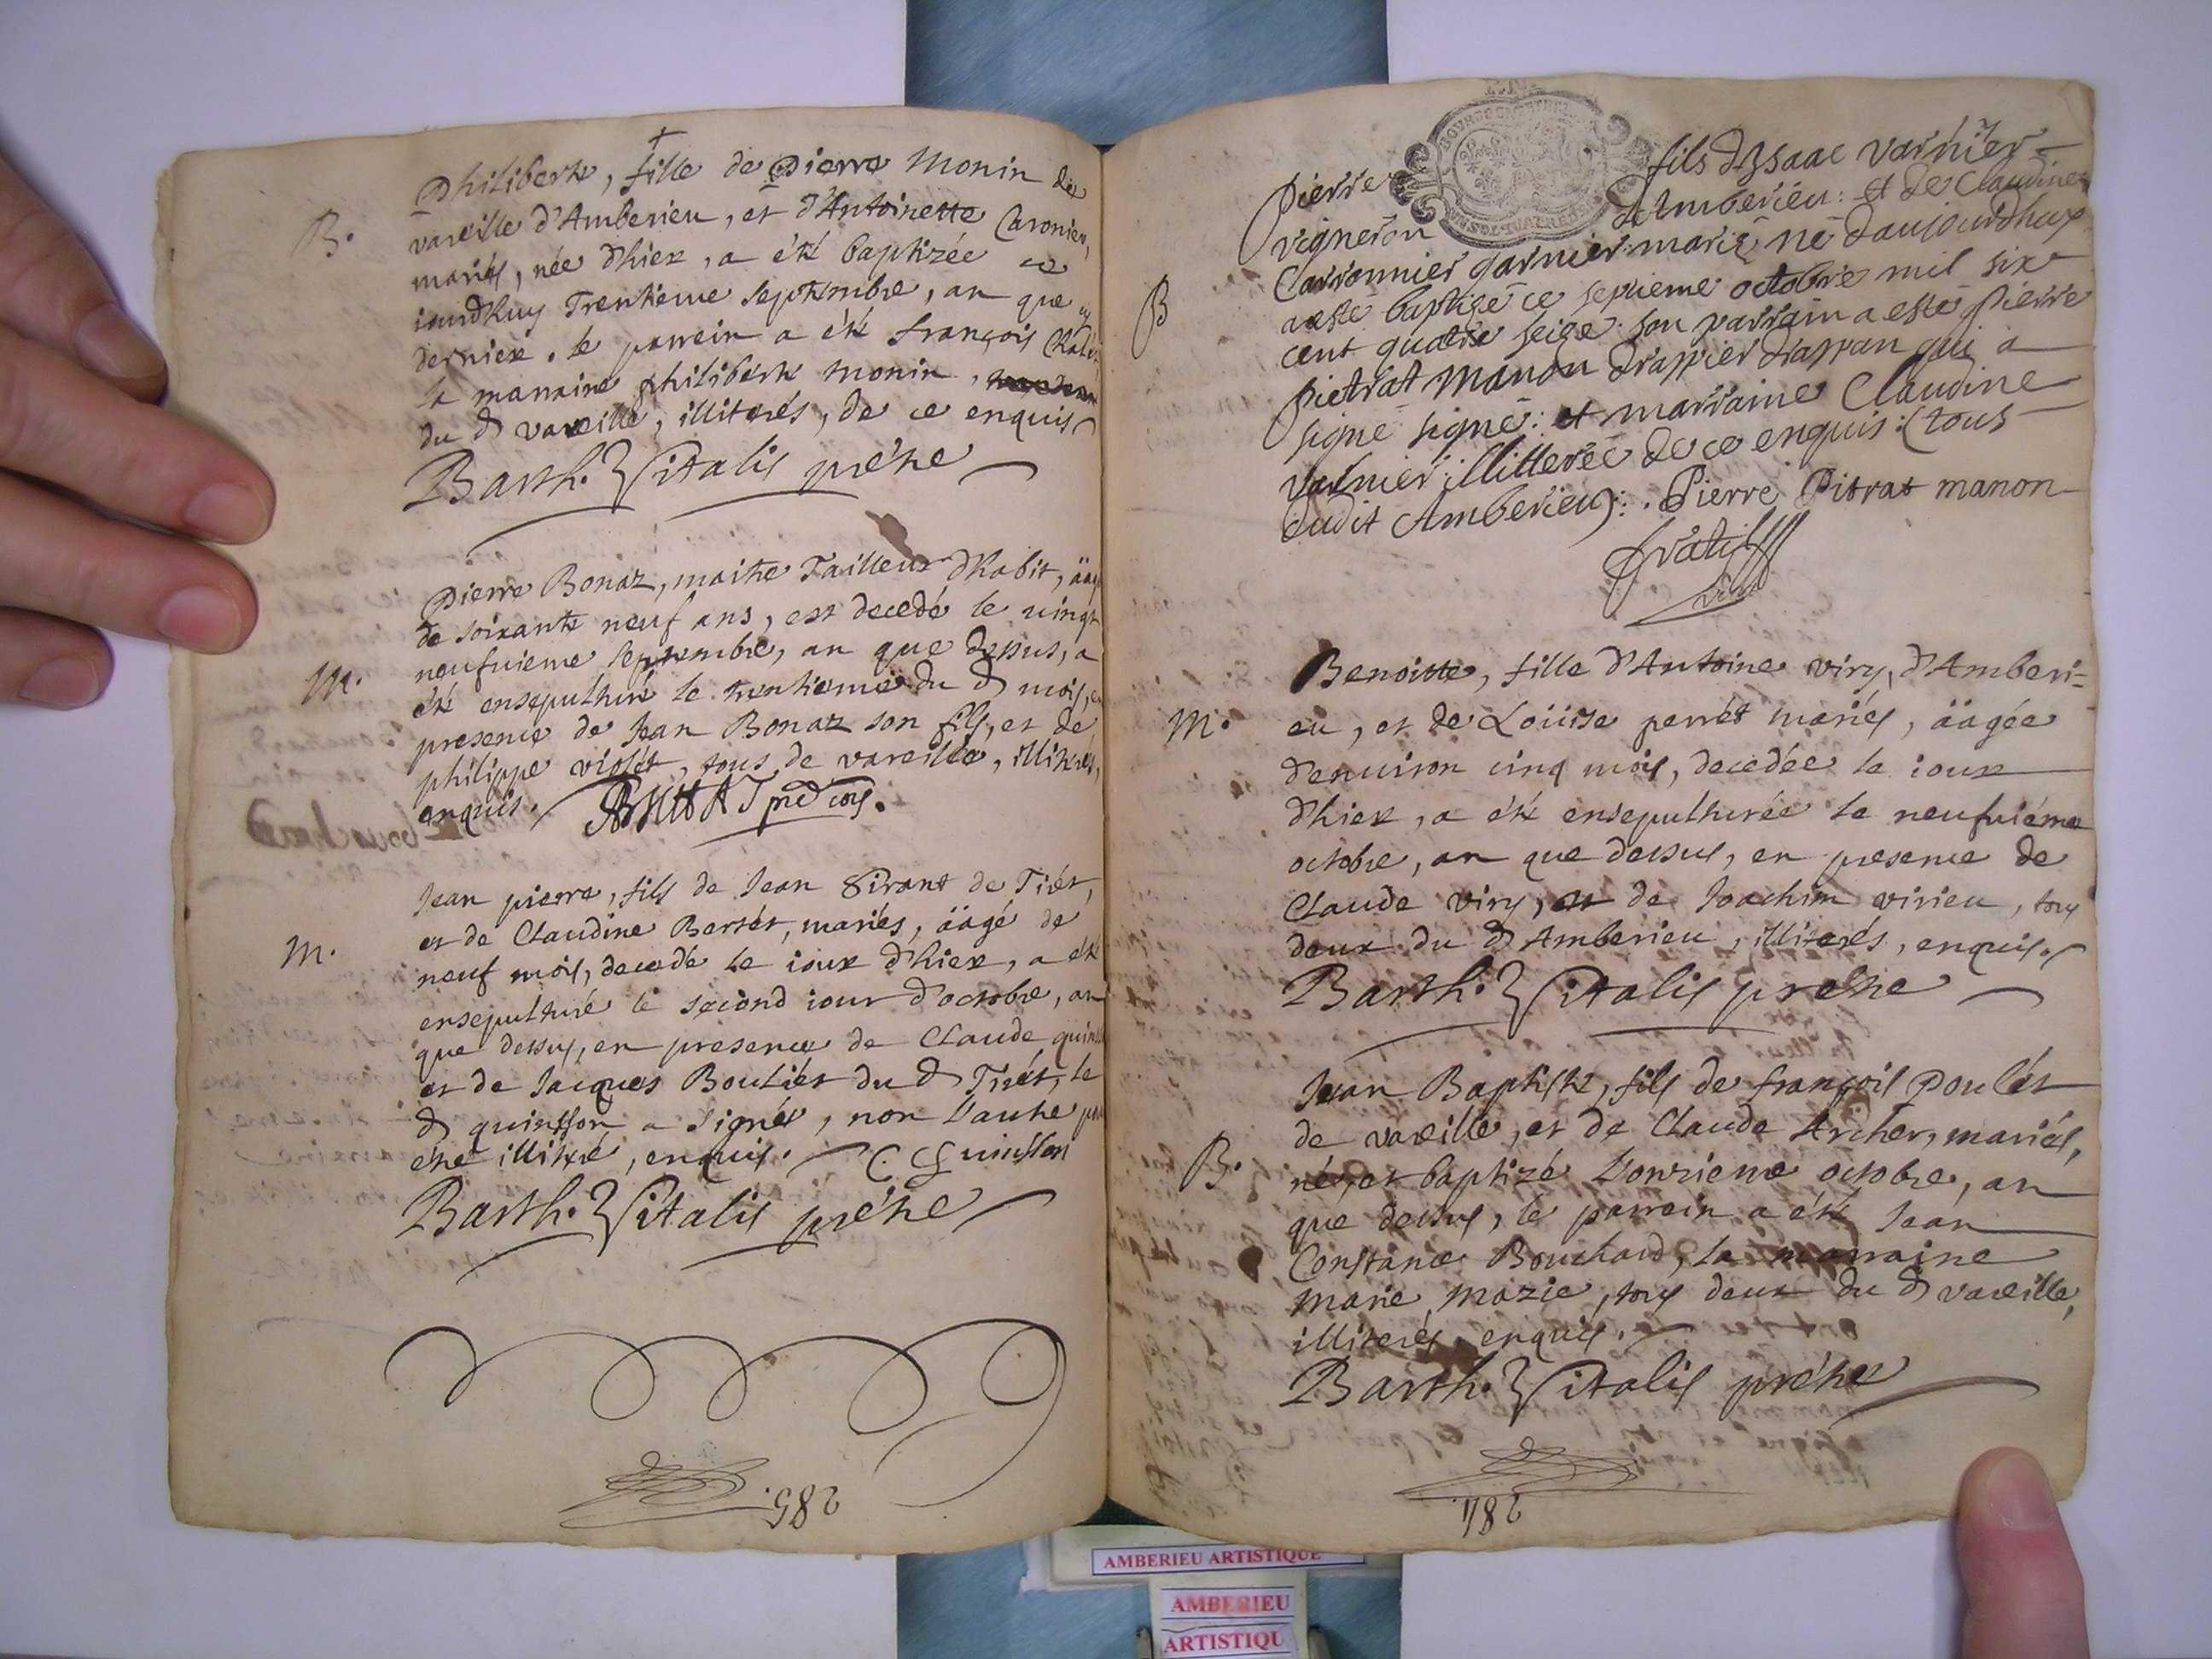 B.
Philiberte, fille de Pierre Monin de
vareille d'Amberieu, et d'Antoinette Caronier,
mariés, née d'hier, a été baptizée ce
iourd'huy Trentieme septembre, an que
dernier. le parrein a été françois
la marraine philiberte Monin,
du d vareille, illiterés, de ce enquis
Barth. Vitalis prétre
M.
Pierre Bonaz, maitre Tailleur d'habit, äagé
de soixante neuf ans, est decedé le vingt
neufuieme septembre, an que dessus, a
été ensepulturé le trentieme du d mois, en
presence de Jean Bonaz son fils, et de
philippe violet, tous de vareille, illiterés,
enquis.
M.
Jean pierre, fils de Jean Girant de Tiret,
et de Claudine Bertét, mariés, äagé de
neuf mois, decedé le iour d'hier, a été
ensepulturé le second iour d'octobre, an
que dessus, en presence de Claude quinson
et de Jacques Boutiér du d Tirét, le
d quinson a signér, non l'autre pour
étre illitéré, enquis. C. Quinson
Barth. Vitalis prétre
285.
B
Pierre fils d'Isaac varnier
vigneron d'Amberieu: et de Claudine
Carronnier garnier mariē né d'aujourdhuy
a esté baptisé ce septieme octobre mil six
cent quatre seize. son parrain a esté pierre
pietrat Manon drappier drappan qui a
signé signé: et marraine Claudine
varnier illitterée de ce enquis: (tous
dudit Amberieu): . Pierre Pitrat manon
M.
Benoitte, fille d'Antoine viry, d'Amberi=
eu, et de Loüise perrét mariés, äagée
d'enuiron cinq mois, decedée le iour
d'hier, a été ensepulturée le neufuiéme
octobre, an que dessus, en presence de
Claude viry, et de Joachim virieu, tous
deux du d Amberieu, illiterés, enquis.
Barth. Vitalis prétre
B.
Jean Baptiste, fils de françois Poulét
de vareille, et de Claude Archer, mariés,
né, et baptizé l'onzieme octobre, an
que dessus, le parrein a été Jean
Constance Bouchard, la marraine
marie mazie, tous deux du d vareille,
illiterés enquis.
Barth. Vitalis prétre
284
AMBERIEU ARTISTIQUE
AMBERIEU
ARTISTIQU